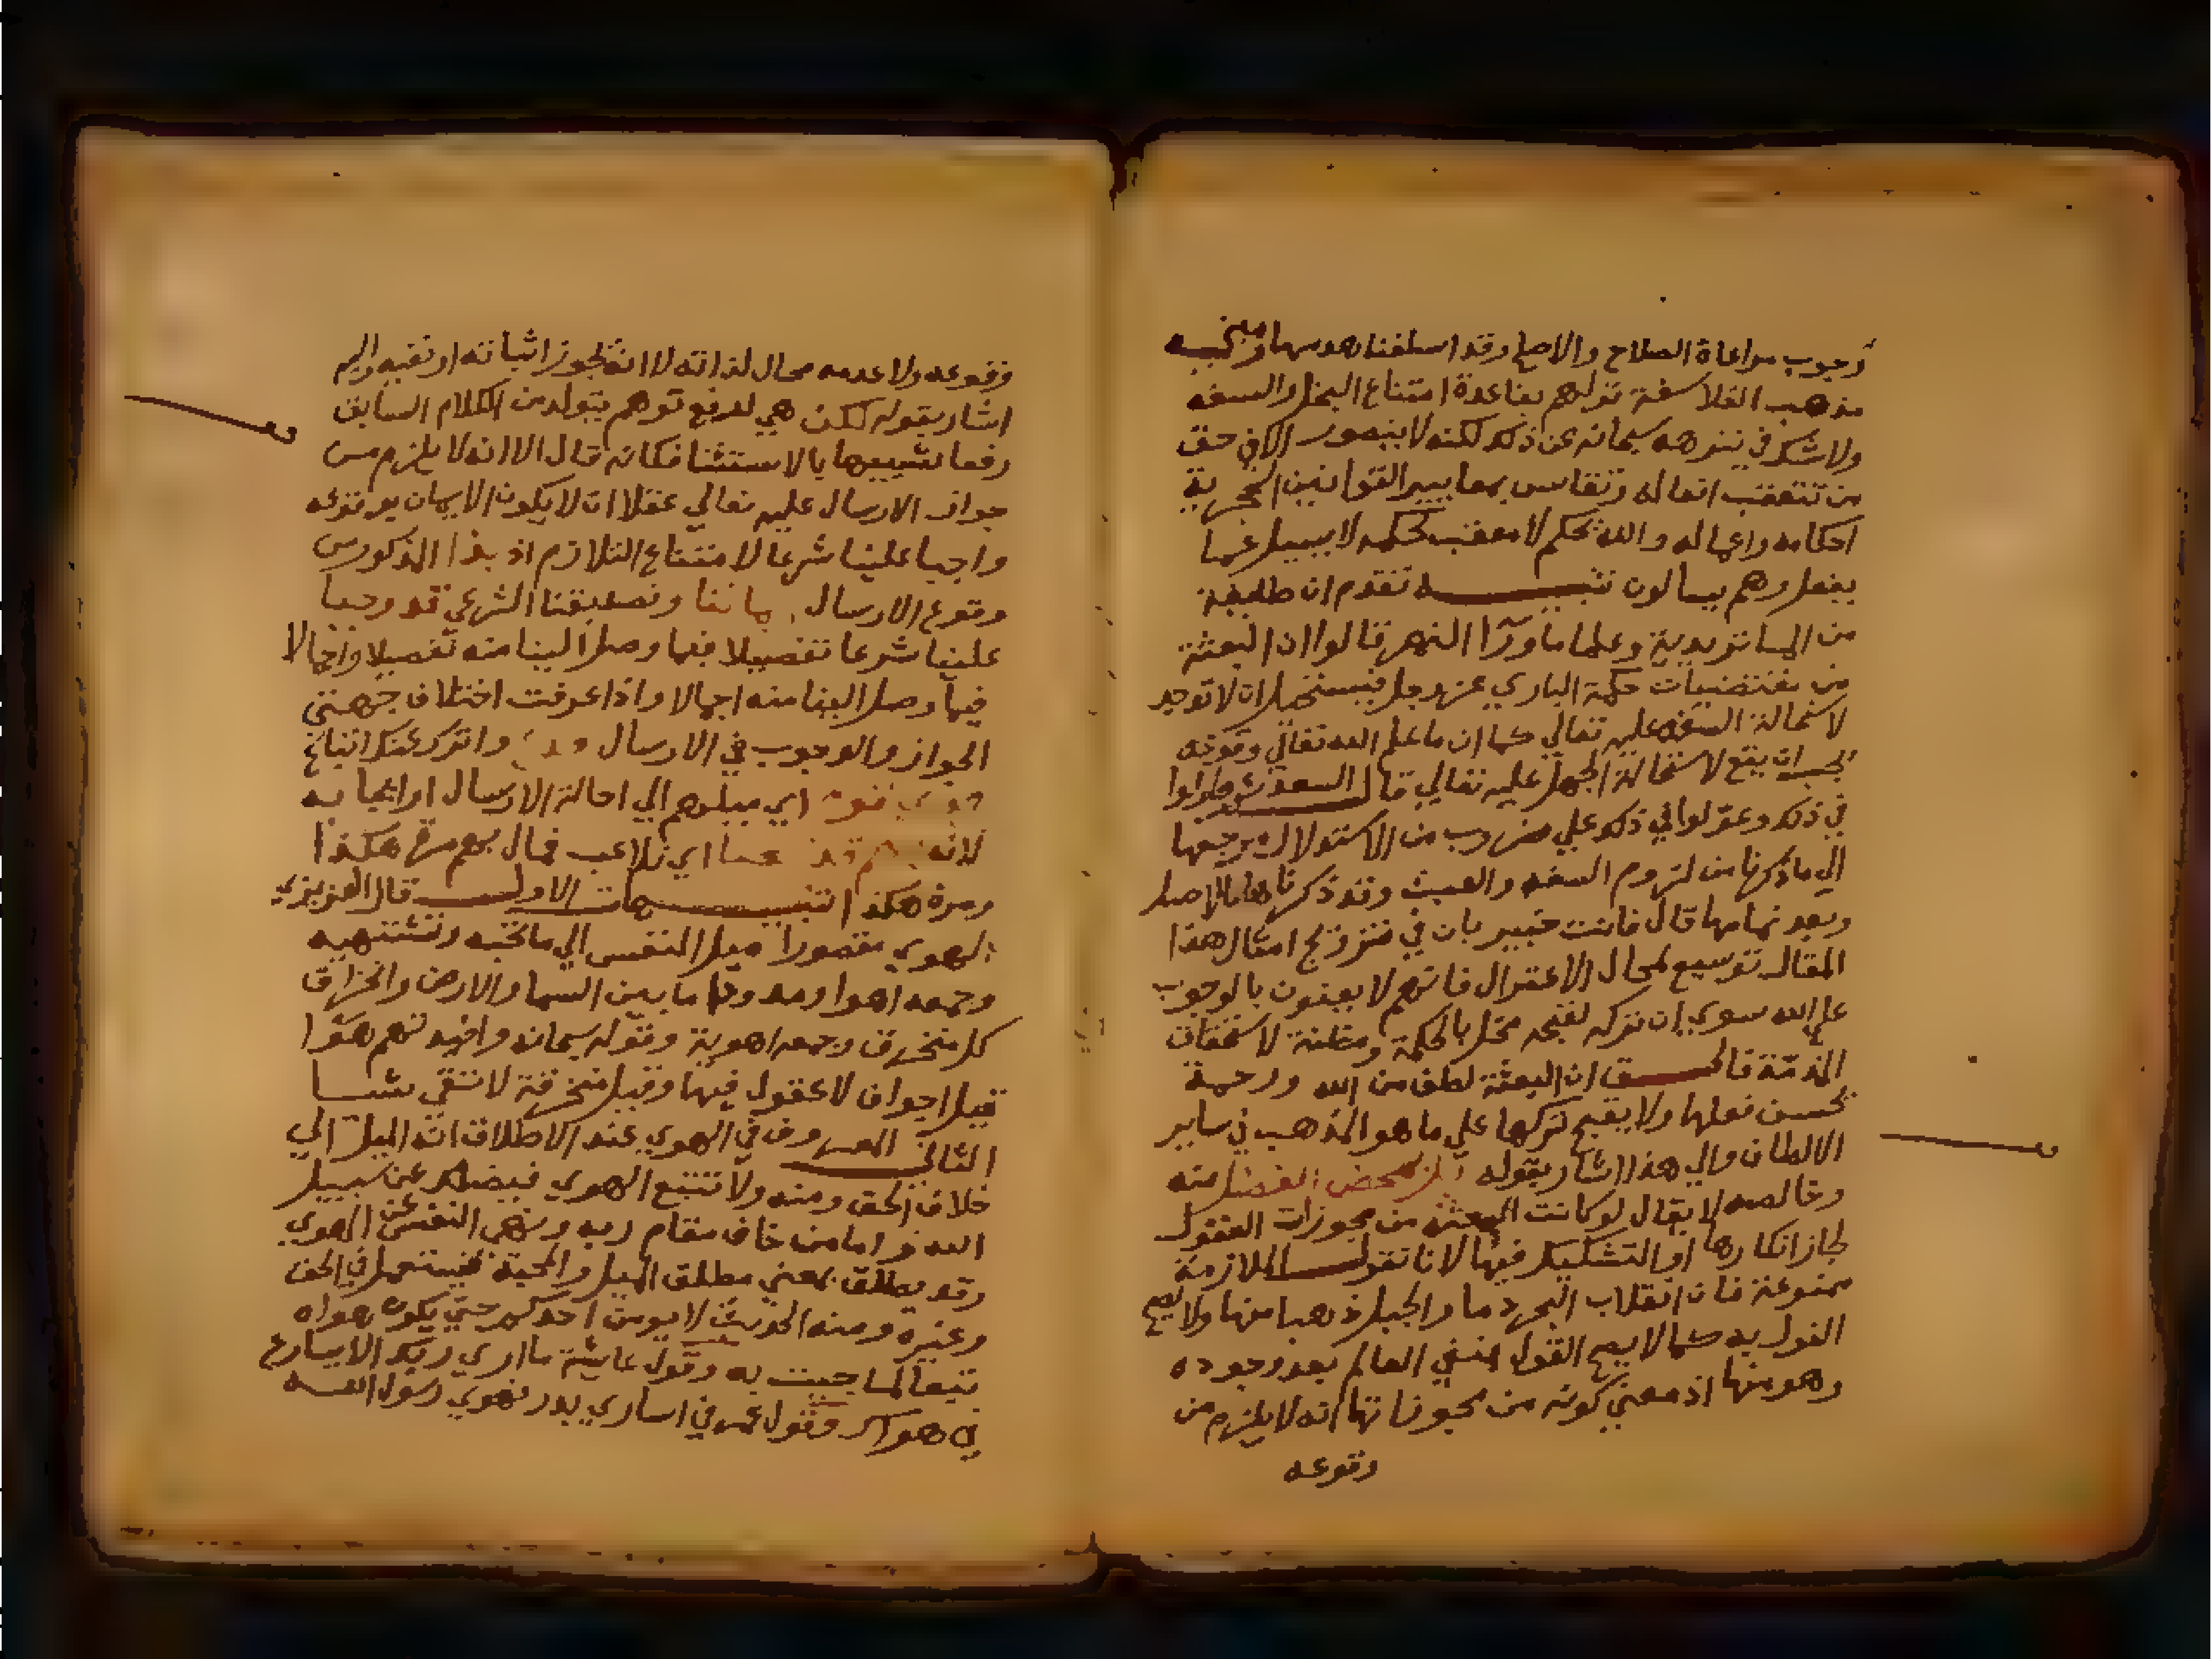 وجوب مراعاة الصلاح والاصلح وقد اسلفنا هدمهما ومبنى
مذهب الفلاسفة تولهم بقاعدة امتناع البخل والسفه
ولا شك في تنزهه سبحانه عن ذلك لكنه لا يتصور الا في حق
من تتعقب افعاله وتقاس بمعايير القوانين
احكامه واعماله والله يحكم لا معقب لحكمه لا يسيل عما
يفعل وهم يسالون تنبيه تقدم ان طايفة
من الماتريدية وعلما ما ورآ النهر قالوا ان البعثة
من مقتضيات حكمة الباري عز وجل فيستحيل ان لا توجد
لاستحالة السفه عليه تعالي كما ان ما علم الله تعالي وقوعه
يجب ان يقع لاستحالة الجهل عليه تعالي قال السعد
في ذلك وعولوا في ذلك علي ضروب من الاستدلال مرجعها
الي ما ذكرنا من لزوم السفه والعبث وقد ذكرناها بالاصل
وبعد تمامها قال فانت خبير بان في ترويج امثال هذا
المقال توسيع لمجال الاعتزال فانهم لا يعنون بالوجوب
علي الله سوي ان تركه لقبحه مخل بالحكمة ومظنة لاستحقاق
المذمة فالحق ان البعثة لطف من الله ورحمة
يحسن فعلها ولا يقبح تركها علي ما هو المذهب في ساير
الالطاف والي هذا اشار بقوله بل بمحض الفضل منه
وخالصه لا يقال لو كانت البعثة من مجوزات العقول
لجاز انكارها او التشكيك فيها لانا نقول الملازمة
ممنوعة فان انقلاب البحر دما والجبل ذهبا منها ولا يصح
القول به كما لا يصح القول بنفي العالم بعد وجوده
وهو منها اذ معني كونه من مجوزاتها انه لا يلزم من
وقوعه
وقوعه ولا عدمه محال لذاته لا انه يجوز اثباته او نفيه واليه
اشار بقوله لكن هي لدفع توهم يتولد من الكلام السابق
رفعا شبيها بالاستثنا فكانه قال الا انه لا يلزم من
جواز الارسال عليه تعالي عقلا ان لا يكون الايمان بوقوعه
واجبا علينا شرعا لامتناع التلازم اذ بذا المذكور من
وقوع الارسال ايماننا وتصديقنا الشرعي قد وجبا
علينا شرعا تفصيلا فيما وصل الينا منه تفصيلا واجمالا
فيما وصل الينا منه اجمالا واذا عرفت اختلاف جهتي
الجواز والوجوب في الارسال ودع واترك عنك اتباع
هوي قوم اي ميلهم الي احالة الارسال او ايجابه
لانه بهم قد لعبا اي تلاعب فمال بهم مرة هكذا
ومرة هكذا تنبيهات الاول قال العزيزي
الهوي مقصورا ميل النفس الي ما تحبه وتشتهيه
وجمعه اهوا وممدودا ما بين السما والارض وانخراق
كل منخرق وجمعه اهوية وقوله سبحانه وافيدتهم هوآ
قيل اجواف لا عقول فيها وقيل منخرقة لا تقي شيا
الثاني المعروف في الهوي عند الاطلاق انه الميل الي
خلاف الحق ومنه ولا تتبع الهوي فيضلك عن سبيل
الله واما من خاف مقام ربه ونهي النفس عن الهوي
وقد يطلق بمعني مطلق الميل والمحبة فيستعمل في الحق
وغيره ومنه الحديث لا يومن احدكم حتي يكون هواه
تبعا لما جيت به وقول عايشة ما اري ربك الا يسارع
في هواك وقول عمر في اساري بدر فهوي رسول الله